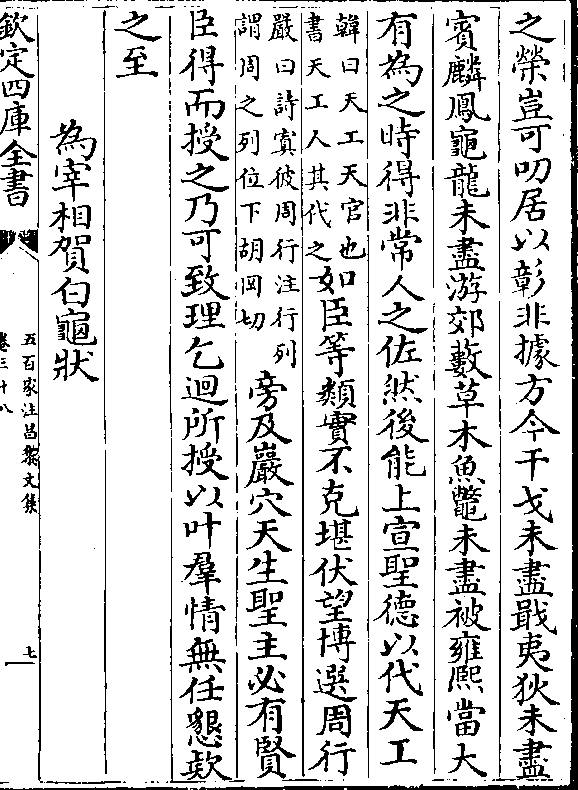 之榮豈可叨居以彰非據方今干戈未盡戢夷狄未盡
賓麟鳳龜龍未盡游郊藪草木魚鼈未盡被雍熙當大
有為之時得非常人之佐然後能上宣聖德以代天工
韓曰天工天官也
書天工人其代之
如臣等類實不克堪伏望博選周行
嚴曰詩寘彼周行注行列
謂周之列位下胡罔切
旁及巖穴天生聖主必有賢
臣得而授之乃可致理乞迴所授以叶羣情無任懇欵
之至
為宰相賀白龜狀
欽定四庫全書
五百家注昌黎文集
卷三十八
七